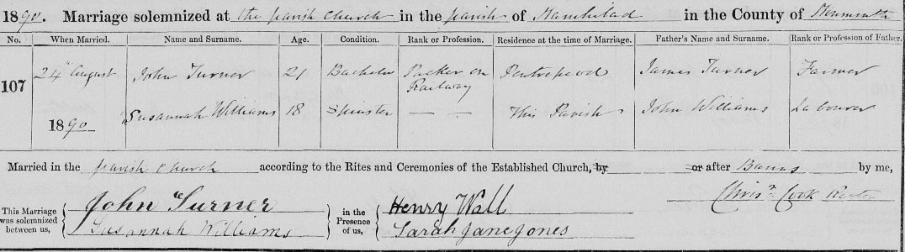 1890. Marriage solemnized at the parish church in the parish of Mamhilad in the County of Monmouth
No. When Married. Name and Surname. Age. Condition. Rank or Profession. Residence at the time of Marriage. Father's Name and Surname. Rank or Profession of Father.
107 24th August 1890 John Turner 21 Bachelor Packer on Railway James Turner Farmer
Susannah Williams 18 Spinster — — This Parish John Williams Labourer
Married in the parish church according to the Rites and Ceremonies of the Established Church, by or after Banns by me,
Chrisr. Cook Rector
This Marriage was solemnized between us, John Turner Susannah Williams in the Presence of us, Henry Wall Sarah Jane Jones